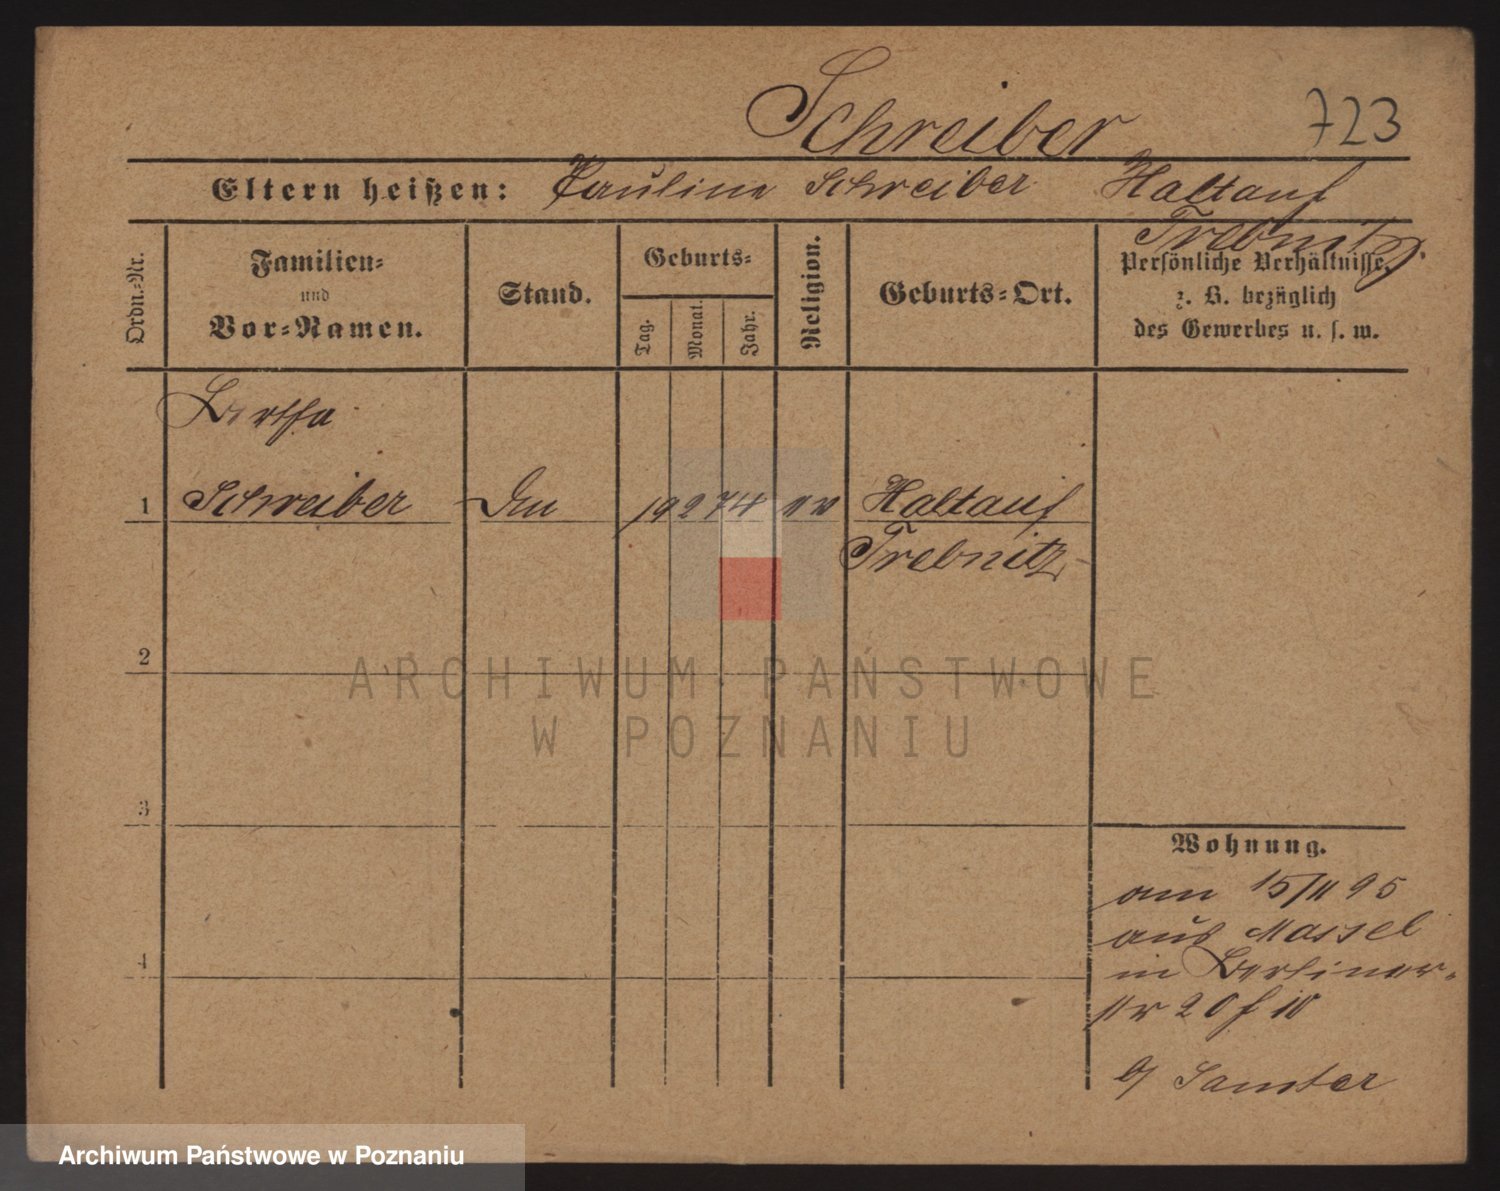 Schreiber 723
Eltern heißen: Pauline Schreiber Haltauf
Trebnitz
Ordn.-Nr. Familien- und Vor-Namen. Stand. Geburts- Tag. Monat. Jahr. Religion. Geburts-Ort. Persönliche Verhältnisse, z. B. bezüglich des Gewerbes u. s. w.
Bertha
1 Schreiber 19 2 74 Haltauf
Trebnitz
2
3
4
Wohnung.
am 15/11 95
aus Massel
in Berliner-
str 20
b/ Samter
ARCHIWUM PAŃSTWOWE
W POZNANIU
Archiwum Państwowe w Poznaniu